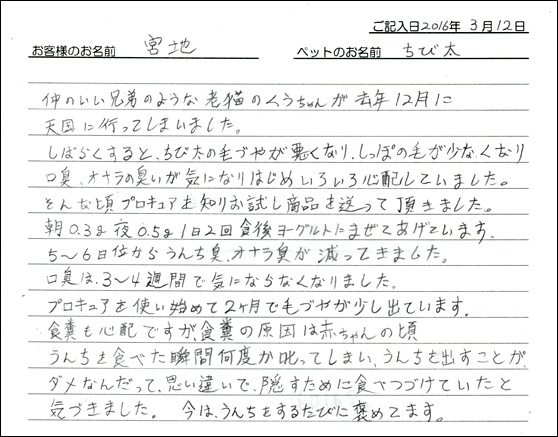 ご記入日2016年 3月12日
お客様のお名前 宮地 ペットのお名前 ちび太
仲のいい兄弟のような老猫のくうちゃんが去年12月に
天国に行ってしまいました。
しばらくすると、ちび太の毛づやが悪くなり、しっぽの毛が少なくなり
口臭、オナラの臭いが気になりはじめいろいろ心配していました。
そんな頃プロキュアを知りお試し商品を送って頂きました。
朝0.3g 夜0.5g 1日2回食後ヨーグルトにまぜてあげています。
5〜6日位からうんち臭、オナラ臭が減ってきました。
口臭は、3〜4週間で気にならなくなりました。
プロキュアを使い始めて2ヶ月で毛づやが少し出ています。
食糞も心配ですが、食糞の原因は赤ちゃんの頃
うんちを食べた瞬間何度か叱ってしまい、うんちを出すことが、
ダメなんだって、思い違いで、隠すために食べつづけていたと
気づきました。 今は、うんちをするたびに褒めてます。